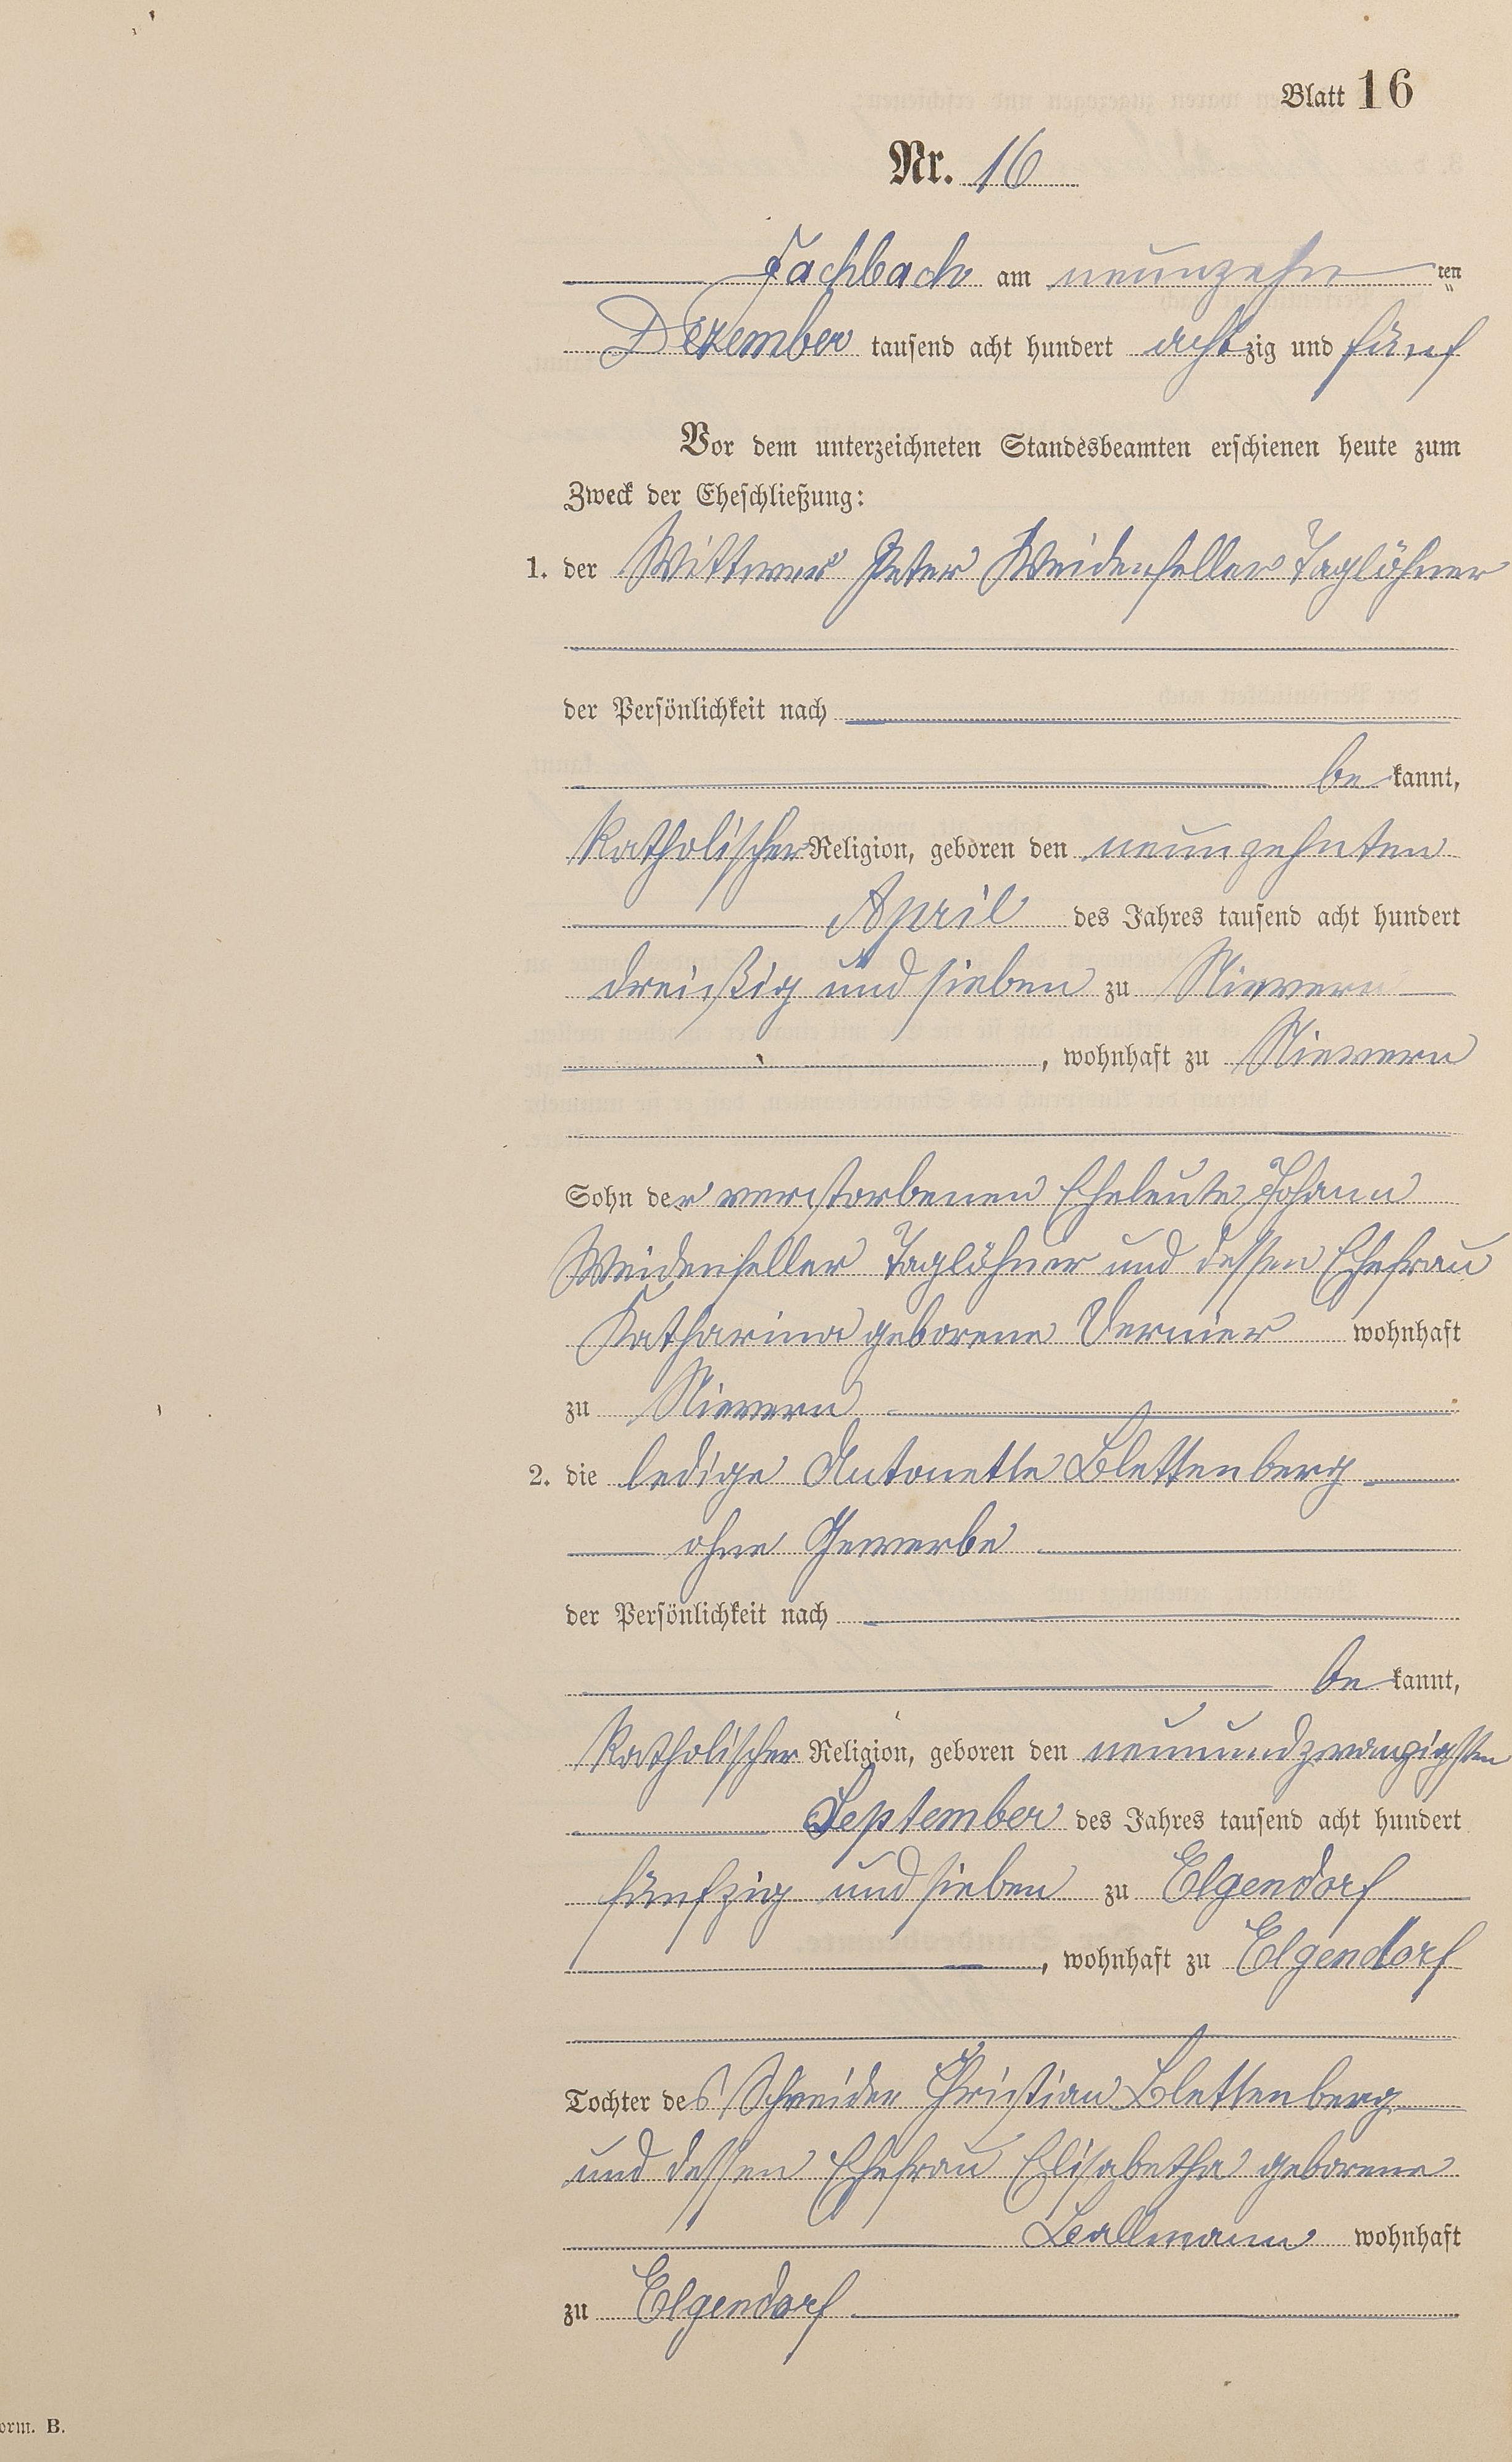 Blatt 16
Nr. 16
Fachbach am neunzehn ten
Dezember tausend acht hundert achtzig und fünf
Vor dem unterzeichneten Standesbeamten erschienen heute zum
Zweck der Eheschließung:
1. der Wittwer Peter Weidenfeller Taglöhner
der Persönlichkeit nach
be kannt,
katholischer Religion, geboren den neunzehnten
April des Jahres tausend acht hundert
dreißig und sieben zu Nievern
, wohnhaft zu Nievern
Sohn der verstorbenen Eheleute Johann
Weidenfeller Taglöhner und dessen Ehefrau
Katharina geborene Vernier wohnhaft
zu Nievern
2. die ledige Antonette Blettenberg
ohne Gewerbe
der Persönlichkeit nach
be kannt,
katholischer Religion, geboren den neunundzwanzigsten
September des Jahres tausend acht hundert
fünfzig und sieben zu Elgendorf
, wohnhaft zu Elgendorf
Tochter des Schneider Christian Blettenberg
und dessen Ehefrau Elisabetha geborene
Ballmann wohnhaft
zu Elgendorf
orm. B.